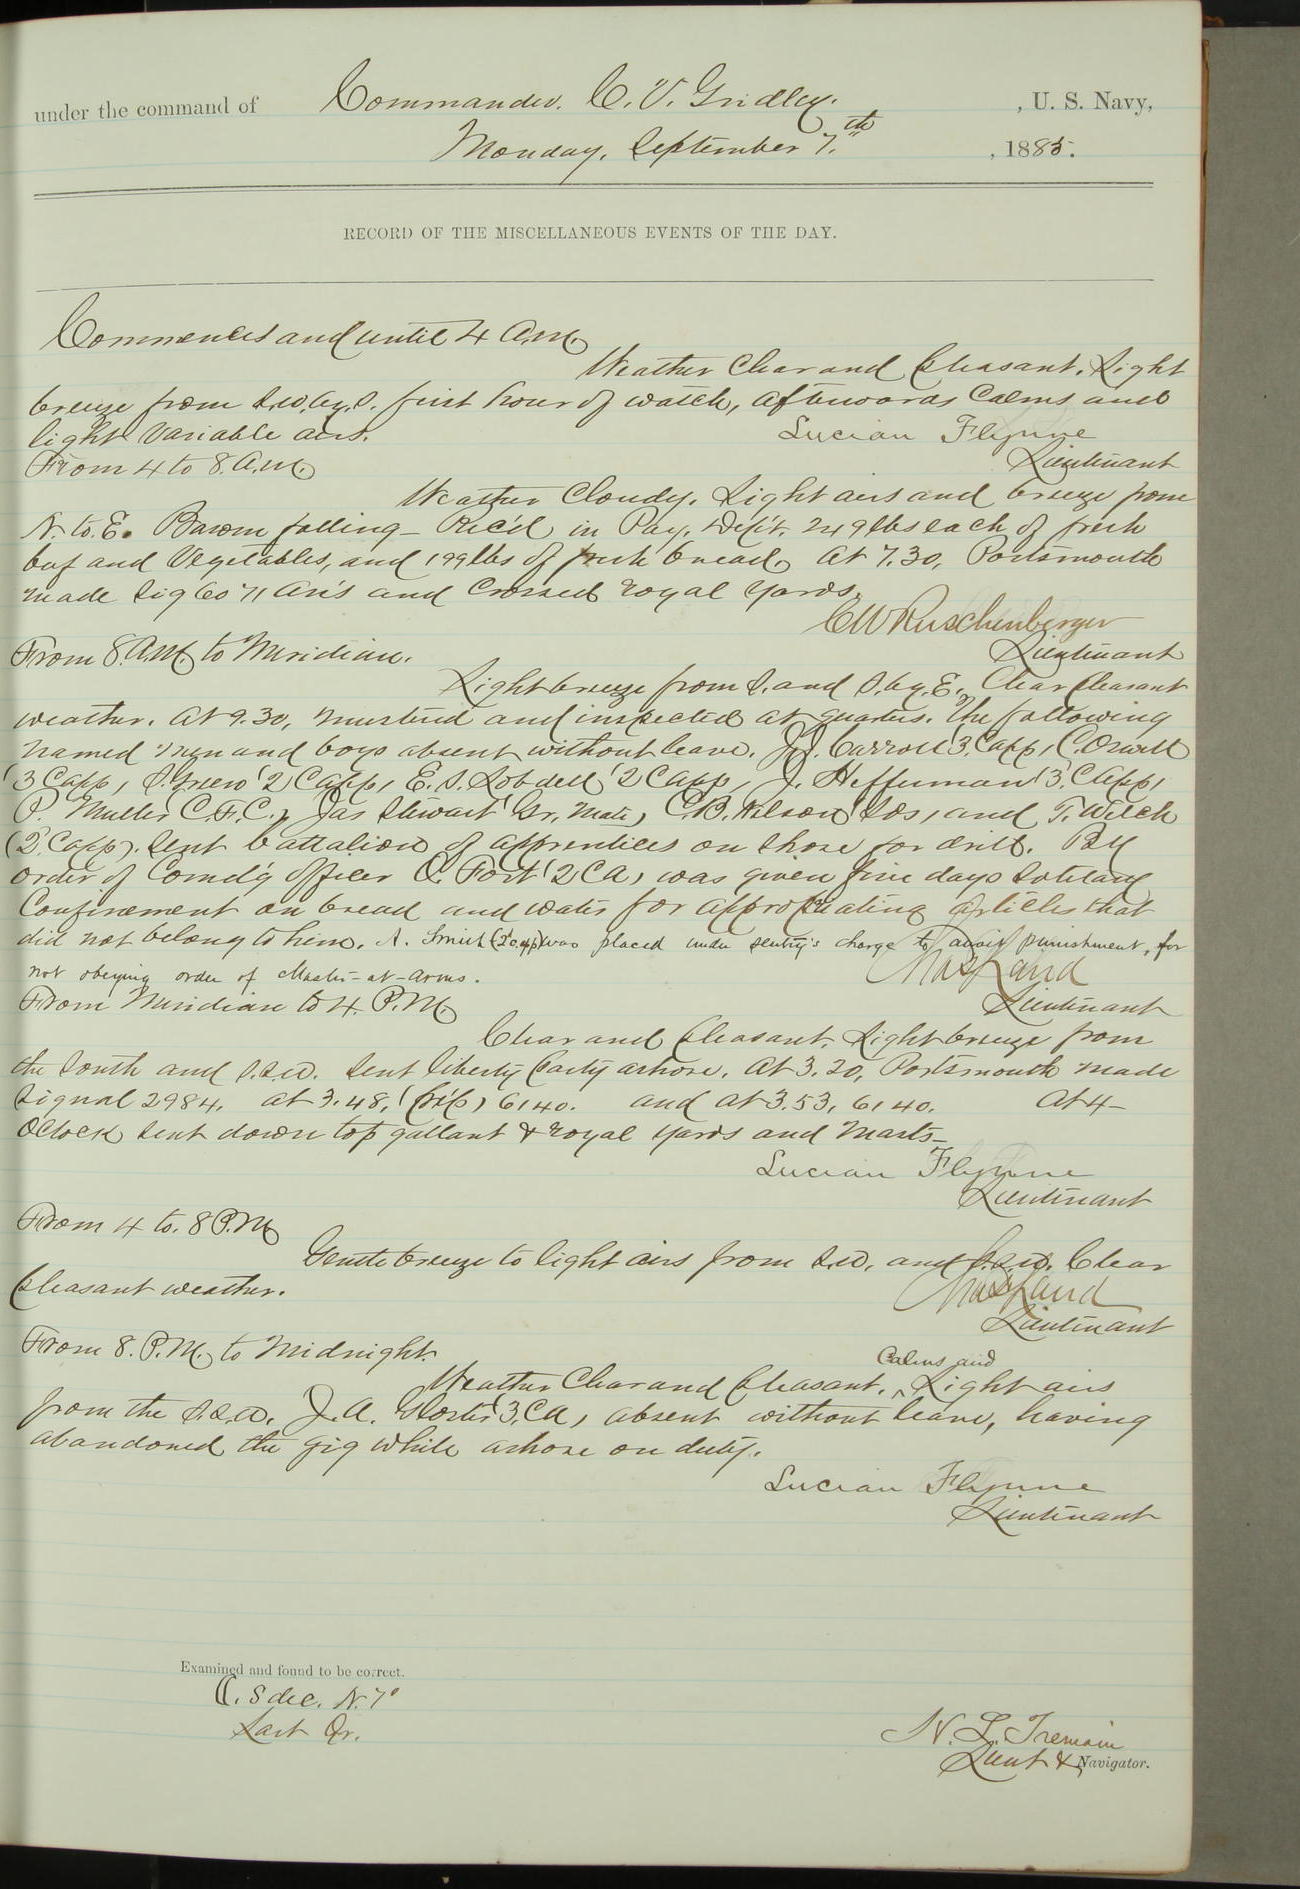 under the command of Commander. C. V. Gridley. , U. S. Navy,
Monday, September 7.th , 1885.
RECORD OF THE MISCELLANEOUS EVENTS OF THE DAY.
Commences and until 4 A.M.
Weather Clear and Pleasant. Light
breeze from S.W.by.S. first hour of watch, afterwards Calms and
light variable airs. Lucian Flynne
Lieutenant
From 4 to 8. A.M.
Weather Cloudy. Light airs and breeze from
N. to. E. Barom falling - Rec'd in Pay. Dep't. 249 lbs each of fresh
beef and Vegetables, and 199 lbs of fresh bread. At 7.30, Portsmouth
made Sig and Crossed royal yards.
C W Ruschenberger
Lieutenant
From 8. A.M. to Meridian.
Light breeze from S. and S. by. E. Clear Pleasant
weather. At 9.30, mustered and inspected at quarters. The following
named men and boys absent without leave. J.J. Carroll (3. Capp, C.
(3 Capp, S. Green (2 Capp, E. S. Lobdell (2 Capp, J. Heffernan (3. Capp,
P. Muller C.F.C., Jas Stewart Gr. Mate, C. B. Wilson Lds, and T. Welch
(2. Capp). Sent battalion of apprentices on shore for drill. By
order of Comd'g Officer C. Fort (2 CA, was given five days Solitary
Confinement on bread and water for appropriating articles that
did not belong to him. A. Smith (2 c app) was placed under sentry's charge to await punishment, for
not obeying order of Master-at-arms. Chas Laird
Lieutenant
From Meridian to 4. P.M.
Clear and Pleasant. Light breeze from
the South and S.S.W. Sent liberty party ashore. At 3.20, Portsmouth made
Signal 2984. at 3.48, 6140. and at 3.53, 6140. At 4-
Oclock sent down top gallant & royal yards and Masts-
Lucian Flynne
Lieutenant
From 4 to. 8 P.M
Gentle breeze to light airs from S.W. and S.S.W. Clear
Pleasant weather. Chas Laird
Lieutenant
From 8. P.M. to Midnight.
Calms and
Weather Clear and Pleasant. ^ Light airs
from the S.S.W. J. A. Gloster (3. CA, absent without leave, having
abandoned the gig while ashore on duty.
Lucian Flynne
Lieutenant
Examined and found to be correct.
Last Qr.
N. L. Tremain
Lieut & Navigator.